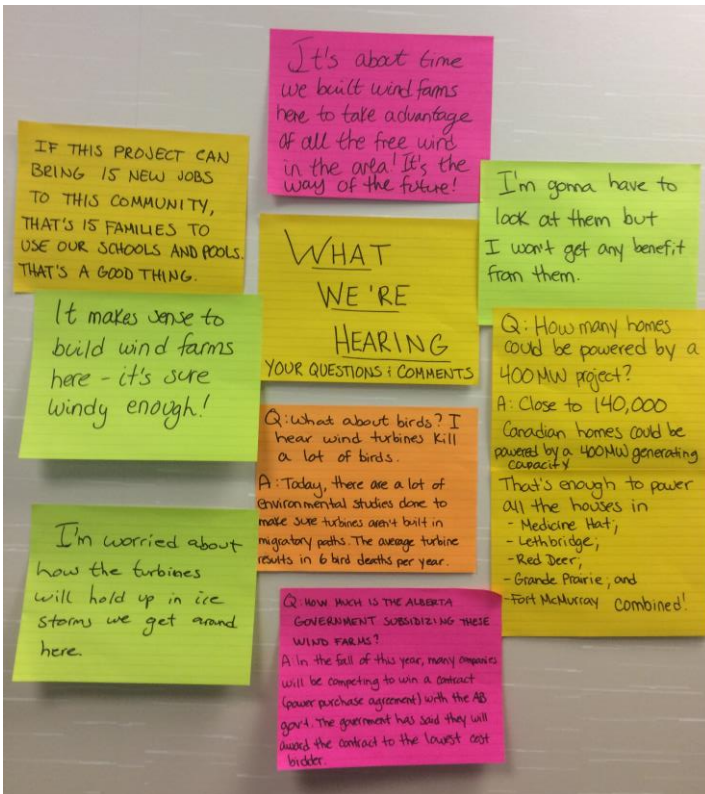 It's about time
we built wind farms
here to take advantage
of all the free wind
in the area! It's the
way of the future!
IF THIS PROJECT CAN
BRING 15 NEW JOBS
TO THIS COMMUNITY,
THAT'S 15 FAMILIES TO
USE OUR SCHOOLS AND POOLS.
THAT'S A GOOD THING.
I'm gonna have to
look at them but
I won't get any benefit
from them.
WHAT
WE'RE
HEARING
YOUR QUESTIONS & COMMENTS
It makes sense to
build wind farms
here - it's sure
windy enough!
Q: How many homes
could be powered by a
400MW project?
A: Close to 140,000
Canadian homes could be
powered by a 400MW generating
capacity
That's enough to power
all the houses in
- Medicine Hat;
- Lethbridge;
- Red Deer;
- Grande Prairie; and
- Fort McMurray combined!
Q: What about birds? I
hear wind turbines kill
a lot of birds.
A: Today, there are a lot of
environmental studies done to
make sure turbines aren't built in
migratory paths. The average turbine
results in 6 bird deaths per year.
I'm worried about
how the turbines
will hold up in ice
storms we get around
here.
Q: HOW MUCH IS THE ALBERTA
GOVERNMENT SUBSIDIZING THESE
WIND FARMS?
A In the fall of this year, many companies
will be competing to win a contract
(power purchase agreement) with the AB
gov't. The government has said they will
award the contract to the lowest cost
bidder.